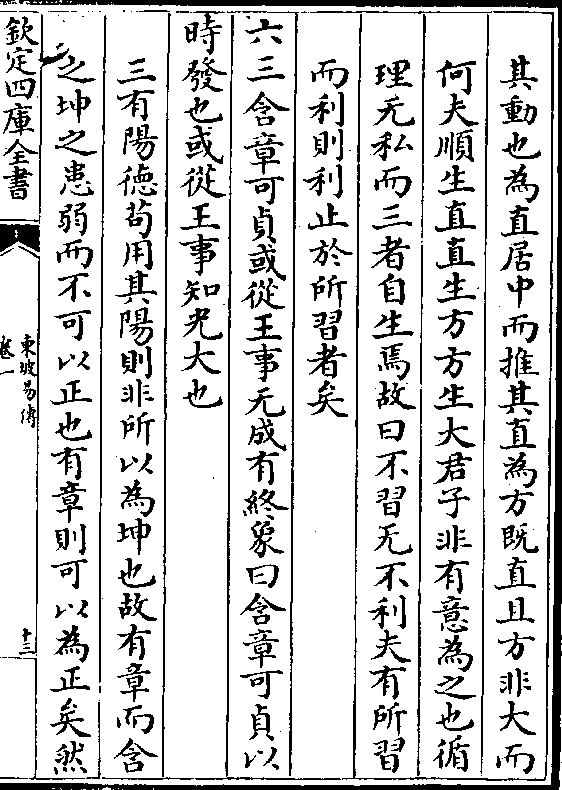 其動也為直居中而推其直為方既直且方非大而
何夫順生直直生方方生大君子非有意為之也循
理无私而三者自生焉故曰不習无不利夫有所習
而利則利止於所習者矣
六三含章可貞或從王事无成有終象曰含章可貞以
時發也或從王事知光大也
三有陽德苟用其陽則非所以為坤也故有章而含
之坤之患弱而不可以正也有章則可以為正矣然
欽定四庫全書
東坡易傳
卷一
十三